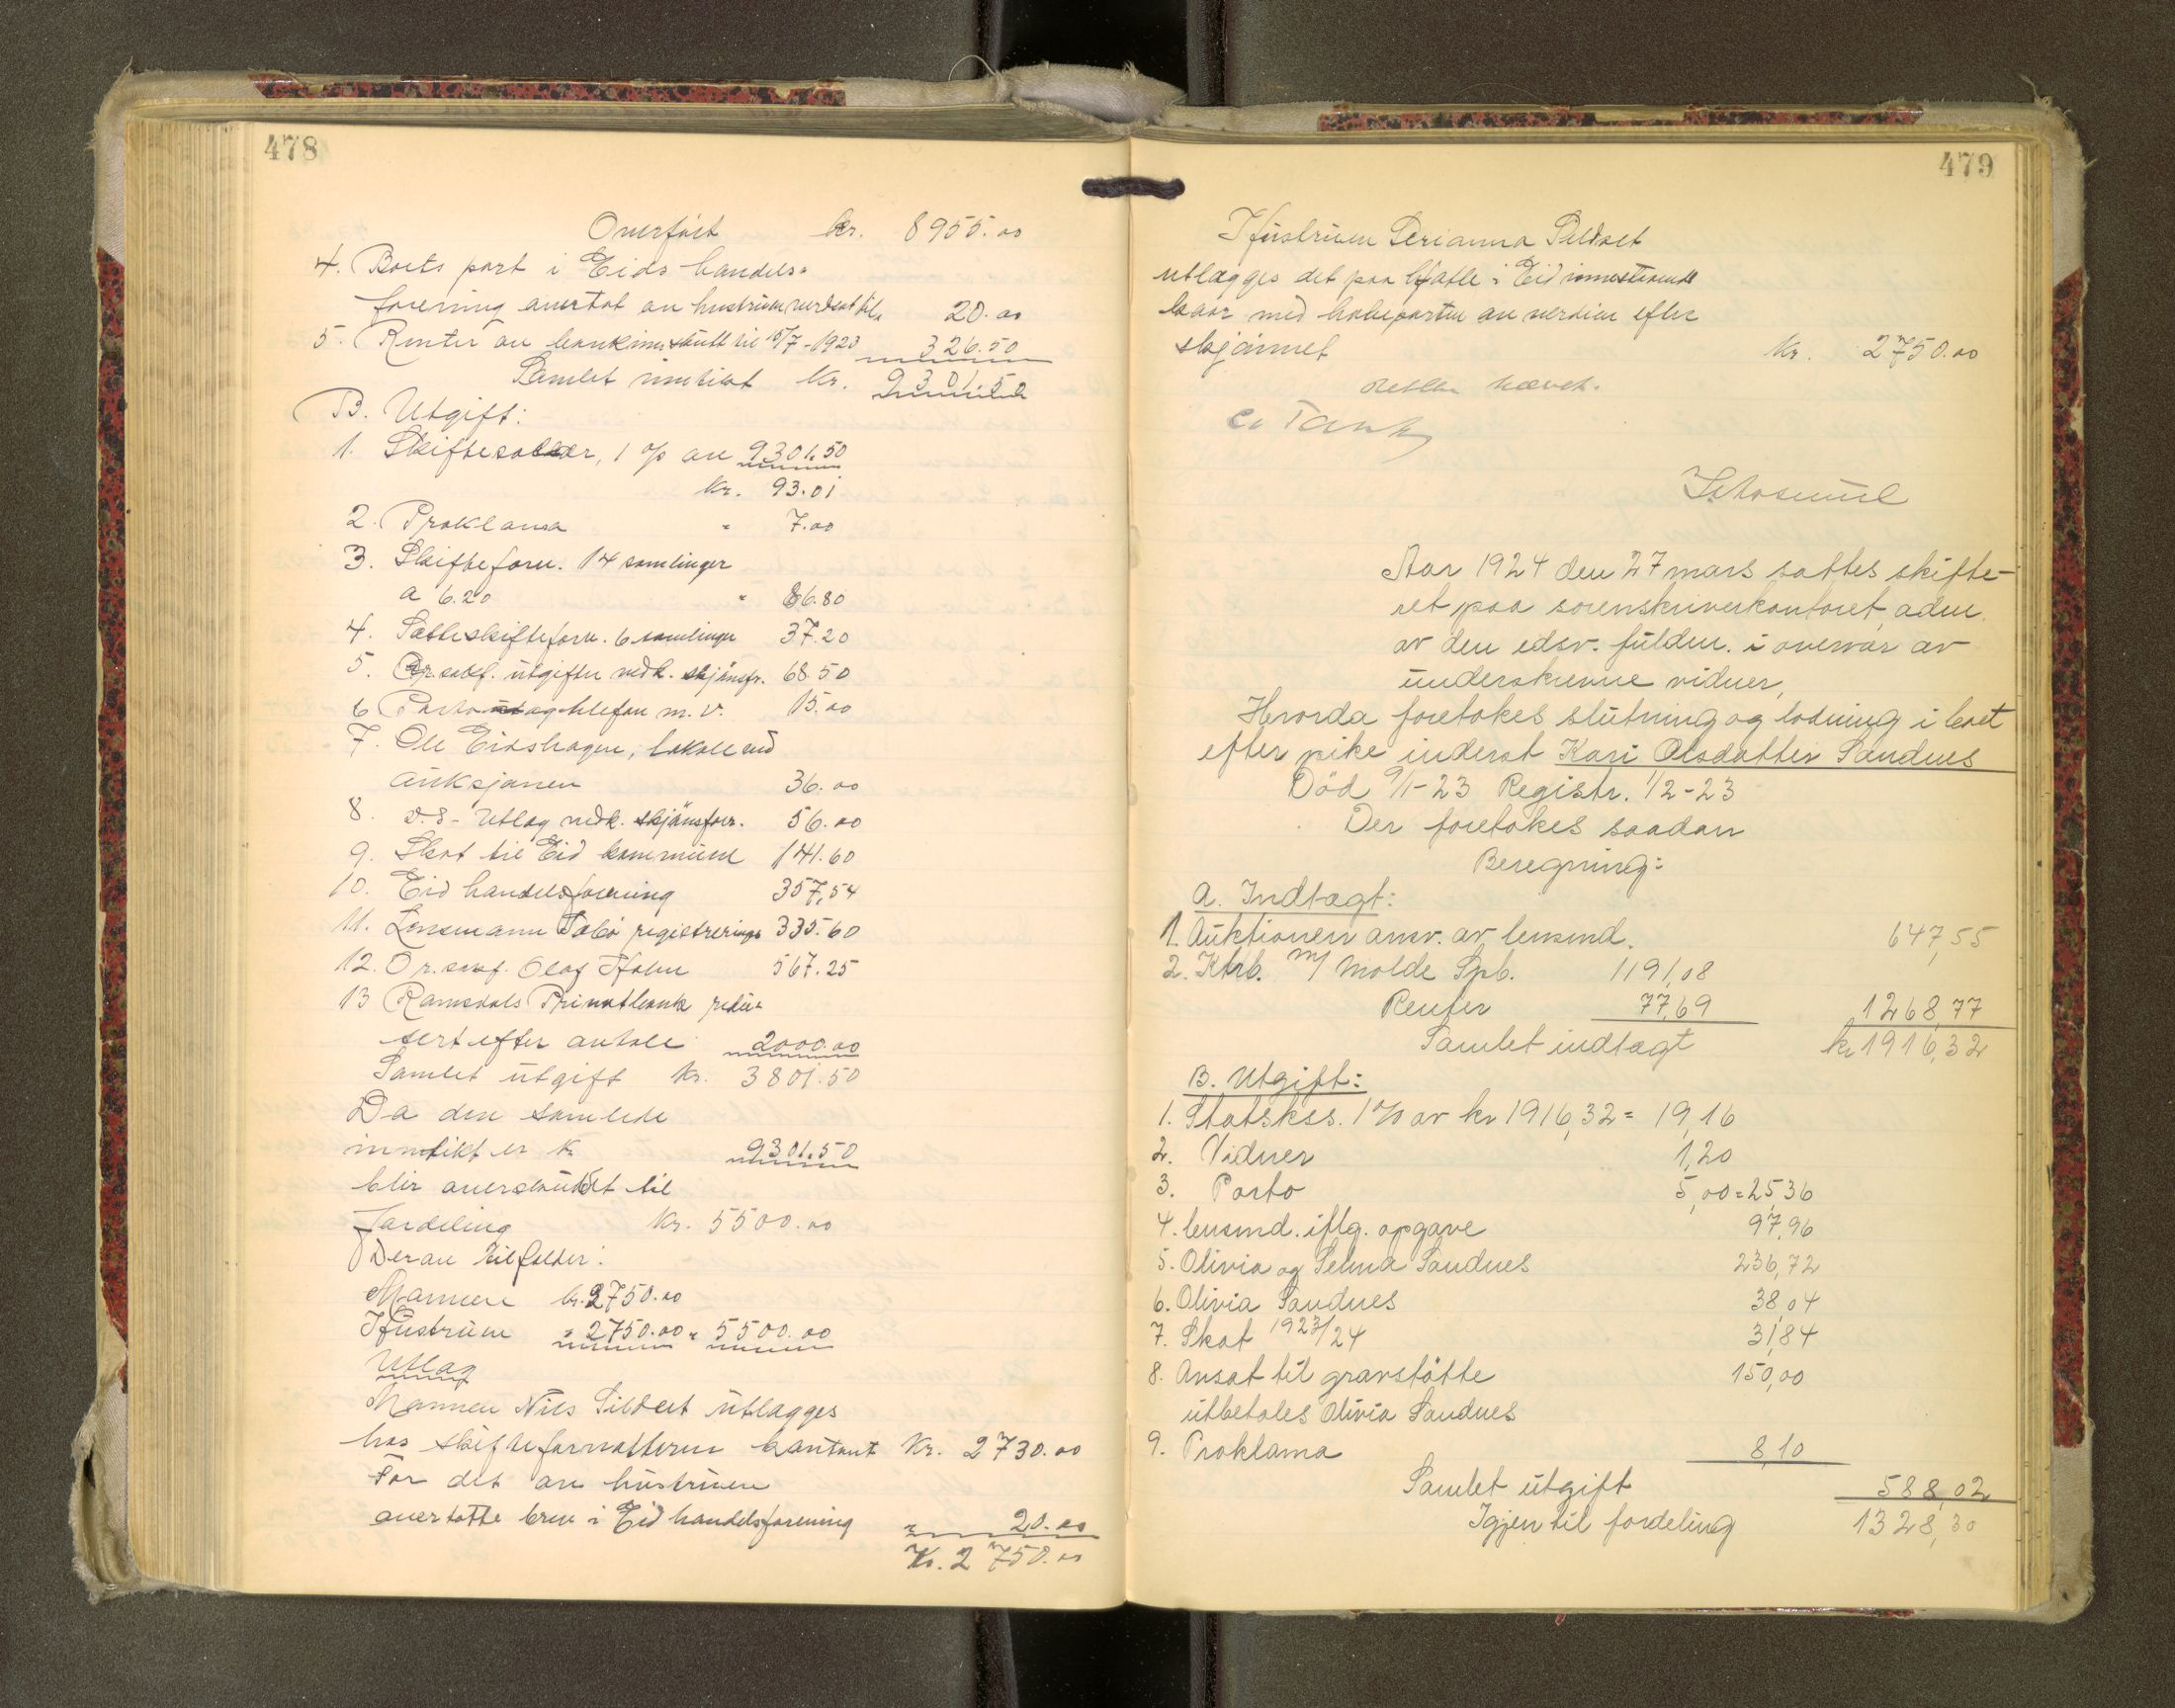 478
Overført kr. 8955.00
4. Boets part i Eids handels-
forening overtat av hustruen verdsat til " 20.00
5. Renter av bankinnskutt til 15/7-1923 326.50
Samlet inntikt kr. 9301.50
B. Utgift:
1. Skiftesalær, 1 % av 9301.50
kr. 93.01
2. Proklama " 7.00
3. Skifteforv. 14 samlinger
a 6.20 " 86.80
4. Sætteskifteforv. 6 samlinger 37.20
5. O.r.sakf. utgifter vedk. skjønsfr. 68.50
6 Porto telefon m.v. 15.00
7. Ole Eidshagen, lokale ved
auksjonen 36.00
8. d.s - Utlæg vedk. skjønsforr. 56.00
9. Skat til Eid kommune 141.60
10. Eid handelsforening 357,54
11. Lensmann registrerings 335.60
12. O.r.sakf. Olaf Holm 567.25
13 Ramsdals Privatbank redu-
sert efter avtale 2000.00
Samlet utgift kr. 3801.50
Da den samlede
inntikt er kr 9301.50
blir overskuddet til
fordeling kr. 5500.00
Derav tilfalder:
Mannen kr. 2750.00
Hustruen " 2750.00 " 5500.00
Utlæg
Mannen Nils Sildset utlægges
hos skifteforvalteren kontant kr. 2730.00
For det av hustruen
overtatte brev i Eid handelsforening " 20.00
Kr. 2750.00
479
Hustruen Serianna Sildset
utlægges det paa Hjatle i Eid innestaaende
med halvparten av verdien efter
skjønnet kr. 2750.00
retten hævet.
C. Tank
Aar 1924 den 27 mars sattes skifte-
ret paa sorenskriverkontoret, adm.
av den edsv. fuldm. i overvær av
underskrevne vidner,
Hvorda foretokes slutning og lodning i boet
efter pike inderst Kari Olsdatter Sandnes
Død 9/1-23 Registr. 1/2-23
Der foretokes saadan
Beregning:
A. Indtægt:
1. Auktionen ansv. av lensmd. 647,55
2. Ktrb. m/ Molde Spb. 1191,08
Renter 77,69 1268,77
Samlet indtægt kr 1916,32
B. Utgift:
1. Statskss. 1 % av kr 1916,32 = 19,16
2. Vidner 1,20
3. Porto 5,00 = 25,36
4. lensmd. iflg. opgave 97,96
5. Olivia og Selma Sandnes 236,72
6. Olivia Sandnes 38,04
7. Skat 1923/24 31,84
8. Avsat til gravstøtte 150,00
utbetales Olivia Sandnes
9. Proklama 8,10
Samlet utgift 588,02
Igjen til fordeling 1328,30